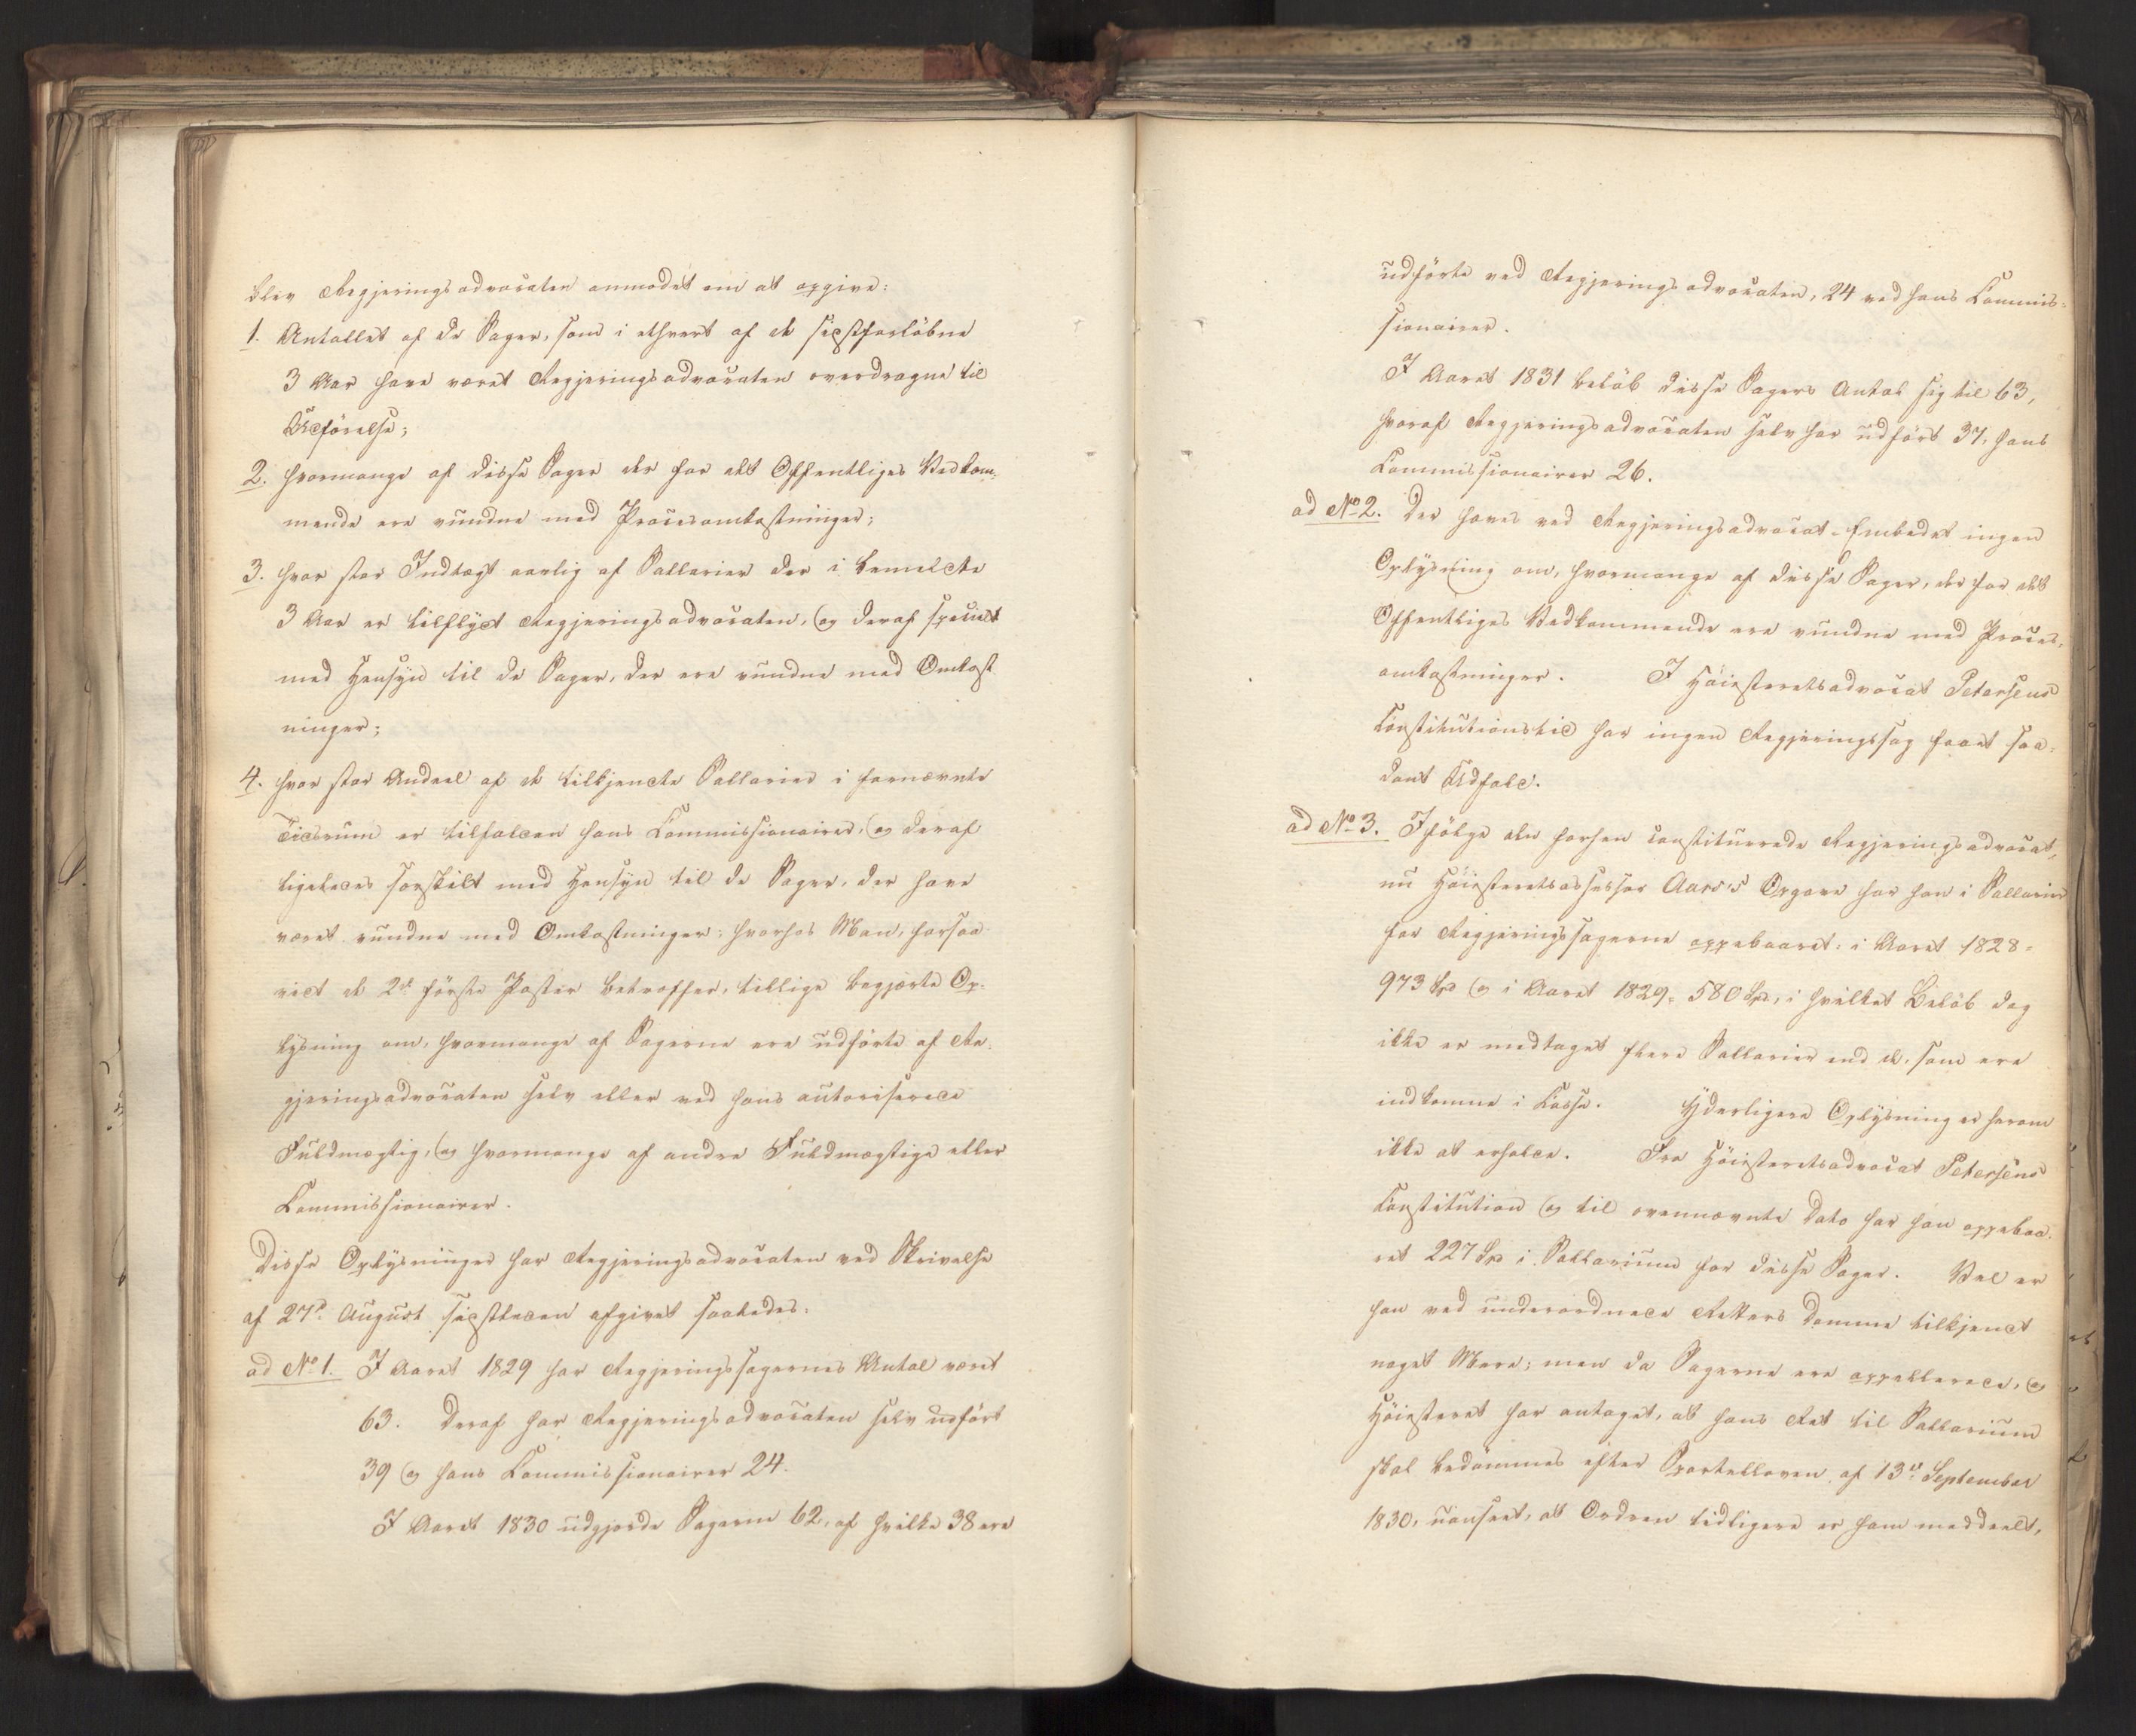 blev Regjeringsadvocaten anmodet om at opgive:
1. Antallet af de Sager, som i ethvert af de sidstforløbne
3 Aar have været Regjeringsadvocaten overdragne til
Udførelse;
2. hvormange af disse Sager der for det Offentliges Vedkom-
mende ere vundne med Procesomkostninger;
3. hvor stor Indtægt aarlig af Sallarier der i bemeldte
3 Aar er tilflydt Regjeringsadvocaten, og deraf specielt
med Hensyn til de Sager, der ere vundne med Omkost
ninger;
4. hvor stor Andeel af de tilkjendte Sallarier i fornævnte
Tidsrum er tilfalden hans Commissionairer, og deraf
ligeledes særskilt med Hensyn til de Sager, der have
været vundne med Omkostninger; hvorhos Man, forsaa
vidt de 2de første Poster betræffer, tillige begjærte Op-
lysning om, hvormange af Sagerne ere udførte af Re-
gjeringsadvocaten selv eller ved hans autoriserede
Fuldmægtig, og hvormange af andre Fuldmægtige eller
Commissionairer.
Disse Oplysninger har Regjeringsadvocaten ved Skrivelse
af 27de August sidstleden afgivet saaledes:
ad No 1. I Aaret 1829 har Regjeringssagernes Antal været
63. Deraf har Regjeringsadvocaten selv udført
39 og hans Commissionairer 24.
I Aaret 1830 udgjorde Sagerne 62, af hvilke 38 ere
udførte ved Regjeringsadvocaten, 24 ved hans Commis-
sionairer.
I Aaret 1831 beløb disse Sagers Antal sig til 63,
hvoraf Regjeringsadvocaten selv har udført 37, hans
Commissionairer 26.
ad No 2. Der haves ved Regjeringsadvocat-Embedet ingen
Oplysning om, hvormange af disse Sager, der for det
Offentliges Vedkommende ere vundne med Proces-
omkostninger. I Høiesteretsadvocat Petersens
Constitutionstid har ingen Regjeringssag faaet saa-
dant Udfald.
ad No 3. Ifølge den forhen constituerede Regjeringsadvocat,
nu Høiesteretsassessor Aars's Opgave har han i Sallarier
for Regjeringssagerne oppebaaret: i Aaret 1828 =
973 Spd og i Aaret 1829 = 580 Spd, i hvilket Beløb dog
ikke er medtaget flere Sallarier end de, som ere
indkomne i Cassa. Yderligere Oplysning er herom
ikke at erholde. Fra Høiesteretsadvocat Petersens
Constitution og til ovennævnte Dato har han oppebaa-
ret 227 Spd i Sallarium for disse Sager. Vel er
han ved underordnede Retters Domme tilkjendt
noget Mere; men da Sagerne ere appellerede, og
Høiesteret har antaget, at hans Ret til Sallarium
skal bedømmes efter Sportelloven af 13de September
1830, uanseet, at Ordren tidligere er ham meddeelt,